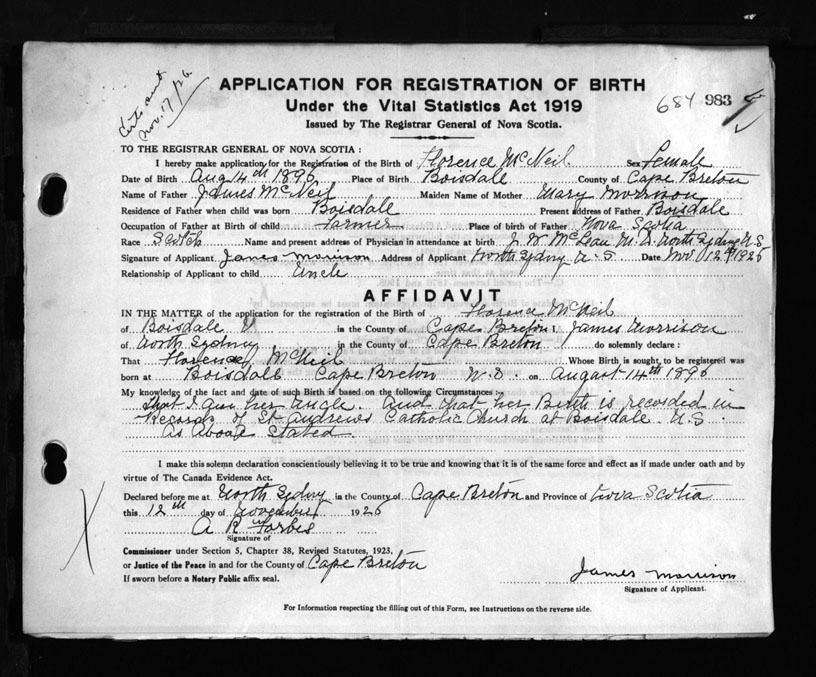 Certs sent
Nov. 17/26
APPLICATION FOR REGISTRATION OF BIRTH
Under the Vital Statistics Act 1919
Issued by The Registrar General of Nova Scotia.
684 983
TO THE REGISTRAR GENERAL OF NOVA SCOTIA:
I hereby make application for the Registration of the Birth of Florence McNeil Sex Female
Date of Birth Aug 14th 1896 Place of Birth Boisdale County of Cape Breton
Name of Father James McNeil Maiden Name of Mother Mary Morrison
Residence of Father when child was born Boisdale Present address of Father Boisdale
Occupation of Father at Birth of child Farmer Place of birth of Father Nova Scotia
Race Scotch Name and present address of Physician in attendance at birth J. W. McLean M.D. North Sydney N.S
Signature of Applicant James Morrison Address of Applicant North Sydney N.S Date Nov 12th 1926
Relationship of Applicant to child Uncle
AFFIDAVIT
IN THE MATTER of the application for the registration of the Birth of Florence McNeil
of Boisdale in the County of Cape Breton I, James Morrison
of North Sydney in the County of Cape Breton do solemnly declare:
That Florence McNeil Whose Birth is sought to be registered was
born at Boisdale Cape Breton N.S. on August 14th 1896
My knowledge of the fact and date of such Birth is based on the following Circumstances:
that I am her Uncle. And that her Birth is recorded in
Records of St Andrews Catholic Church at Boisdale N.S.
As Above Stated.
I make this solemn declaration conscientiously believing it to be true and knowing that it is of the same force and effect as if made under oath and by
virtue of The Canada Evidence Act.
Declared before me at North Sydney in the County of Cape Breton and Province of Nova Scotia
this 12th day of November 1926
A R Forbes
Signature of
Commissioner under Section 5, Chapter 38, Revised Statutes, 1923.
or Justice of the Peace in and for the County of Cape Breton
If sworn before a Notary Public affix seal.
James Morrison
Signature of Applicant.
For Information respecting the filling out of this Form, see Instructions on the reverse side.